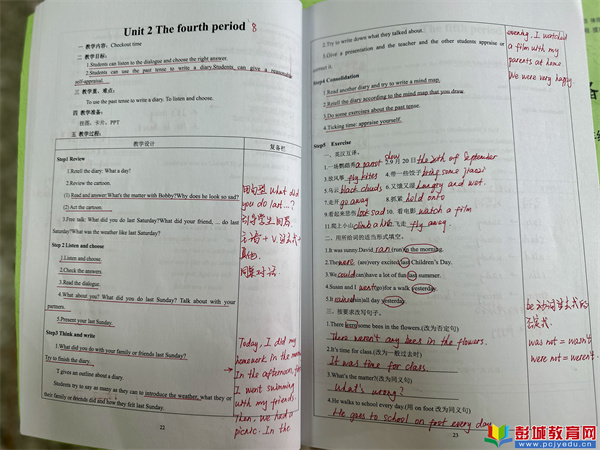 Unit 2 The fourth period 8
一 教学内容: Checkout time
二 教学目标:
1.Students can listen to the dialogue and choose the right answer.
2.Students can use the past tense to write a diary.Students can give a reasonable
self-appraisal.
三 教学重、难点:
To use the past tense to write a diary. To listen and choose.
四 教学准备:
挂图、卡片、PPT
五 教学过程:
教学设计
复备栏
Step1 Review
1.Retell the diary: What a day!
2.Review the cartoon.
(1) Read and answer:What's the matter with Bobby?Why does he look so sad?
(2) Act the cartoon.
3.Free talk: What did you do last Saturday?What did your friend, ... do last
Saturday?What was the weather like last Saturday?
Step 2 Listen and choose
1.Listen and choose.
2.Check the answers.
3.Read the dialogue.
4.What about you? What did you do last Sunday? Talk about with your
partners.
5.Present your last Sunday.
Step3 Think and write
1.What did you do with your family or friends last Sunday?
Try to finish the diary.
T gives an outline about a diary.
Students try to say as many as they can to introduce the weather, what they or
their family or friends did and how they felt last Sunday.
用句型 What did
you do last ...?
引导学生回答
主语 + V.过去式+
其他.
同桌对话.
Today, I did my
homework in the morning
In the afternoon,
I went swimming
with my friends.
Then, we had a
picnic. In the
22
2.Try to write down what they talked about.
3.Give a presentation and the teacher and the other students appraise or
Step4 Consolidation
1.Read another diary and try to write a mind map.
2.Retell the diary according to the mind map that you draw.
3.Do some exercises about the past tense.
4.Ticking time: appraise yourself.
Step5 Exercise
一、英汉互译。
1.一场鹦鹉秀 a parrot show 2.9 月 20 日 the 20th of September
3.放风筝 fly kites 4.带一些饺子 bring some jiaozi
5.乌云 black clouds 6.又饿又湿 hungry and wet.
7.走开 go away 8.抓紧 hold onto
9.看起来悲伤 look sad 10. 看电影 watch a film
11.爬上小山 climb a hill 飞走 fly away.
二、用所给词的适当形式填空。
1.It was sunny.David ran (run) in the morning.
2.They were (are)very excited last Children's Day.
3.We could (can)have a lot of fun last summer.
4.Susan and I went (go)for a walk yesterday.
5.It rained (rain)all day yesterday.
三、按要求改写句子。
1.There were some bees in the flowers.(改为否定句)
There weren't any bees in the flowers.
2.It's time for class.(改为一般过去时)
It was time for class.
3.What's the matter?(改为同义句)
What's wrong?
4.He walks to school every day.(用 on foot 改为同义句)
He goes to school on foot every day.
23
evening, I watched
a film with my
parents at home.
We were very happy
be 动词过去式的
was not = wasn't
were not = weren't
彭城教育网
www.pcjyedu.cn